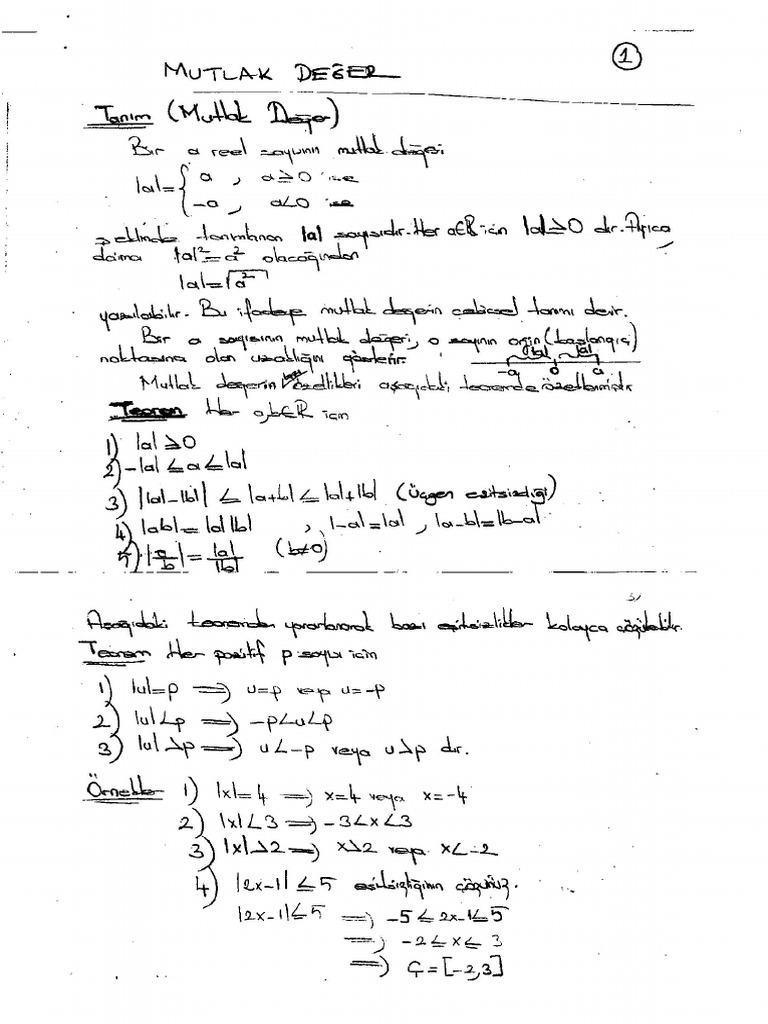 1
MUTLAK DEĞER
Tanım (Mutlak Değer)
Bir a reel sayının mutlak değeri
|a|= { a , a≥0 ise
-a , a<0 ise
şeklinde tanımlanan |a| sayısıdır. Her a∈R için |a|≥0 dır. Ayrıca
daima |a|²=a² olacağından
|a|=√a²
yazılabilir. Bu ifadeye mutlak değerin cebirsel tanımı denir.
Bir a sayısının mutlak değeri, o sayının orjin (başlangıç)
noktasına olan uzaklığını gösterir.
|a| |a|
-a 0 a
Mutlak değerin bazı özellikleri aşağıdaki teoremde özetlenmiştir
Teorem Her a,b∈R için
1) |a|≥0
2) -|a|≤a≤|a|
3) ||a|-|b||≤|a+b|≤|a|+|b| (Üçgen eşitsizliği)
4) |ab|=|a||b| , |-a|=|a| , |a-b|=|b-a|
5) |a/b|=|a|/|b| (b≠0)
Aşağıdaki teoremden yararlanarak bazı eşitsizlikler kolayca çözülebilir.
Teorem Her pozitif p sayısı için
1) |u|=p ⟹ u=p veya u=-p
2) |u|<p ⟹ -p<u<p
3) |u|>p ⟹ u<-p veya u>p dır.
Örnekler 1) |x|=4 ⟹ x=4 veya x=-4
2) |x|<3 ⟹ -3<x<3
3) |x|>2 ⟹ x>2 veya x<-2
4) |2x-1|≤5 eşitsizliğinin çözünüz.
|2x-1|≤5 ⟹ -5≤2x-1≤5
⟹ -2≤x≤3
⟹ Ç=[-2,3]